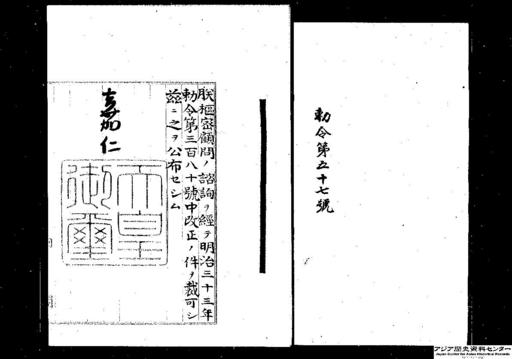 勅令第五十七號
朕樞密顧問ノ諮詢ヲ經テ明治三十三年
勅令第三百八十號中改正ノ件ヲ裁可シ
茲ニ之ヲ公布セシム
嘉仁
天皇御璽
アジア歴史資料センター
Japan Center for Asian Historical Records